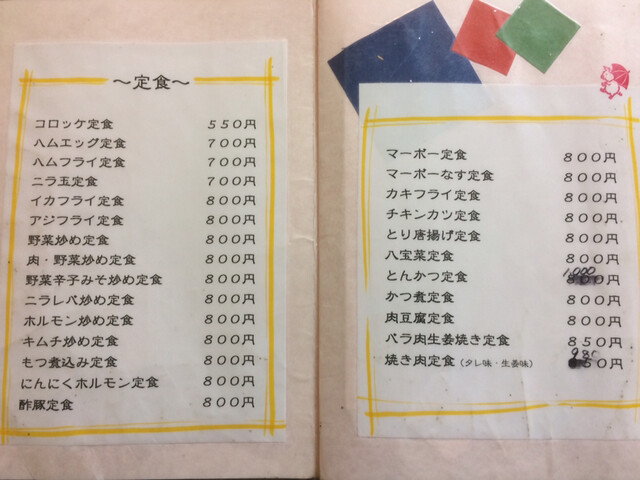 ～定食～
コロッケ定食 ５５０円
ハムエッグ定食 ７００円
ハムフライ定食 ７００円
ニラ玉定食 ７００円
イカフライ定食 ８００円
アジフライ定食 ８００円
野菜炒め定食 ８００円
肉・野菜炒め定食 ８００円
野菜辛子みそ炒め定食 ８００円
ニラレバ炒め定食 ８００円
ホルモン炒め定食 ８００円
キムチ炒め定食 ８００円
もつ煮込み定食 ８００円
にんにくホルモン定食 ８００円
酢豚定食 ８００円
マーボー定食 ８００円
マーボーなす定食 ８００円
カキフライ定食 ８００円
チキンカツ定食 ８００円
とり唐揚げ定食 ８００円
八宝菜定食 ８００円
とんかつ定食 1,000円
かつ煮定食 ８００円
肉豆腐定食 ８００円
バラ肉生姜焼き定食 ８５０円
焼き肉定食（タレ味・生姜味） 980円